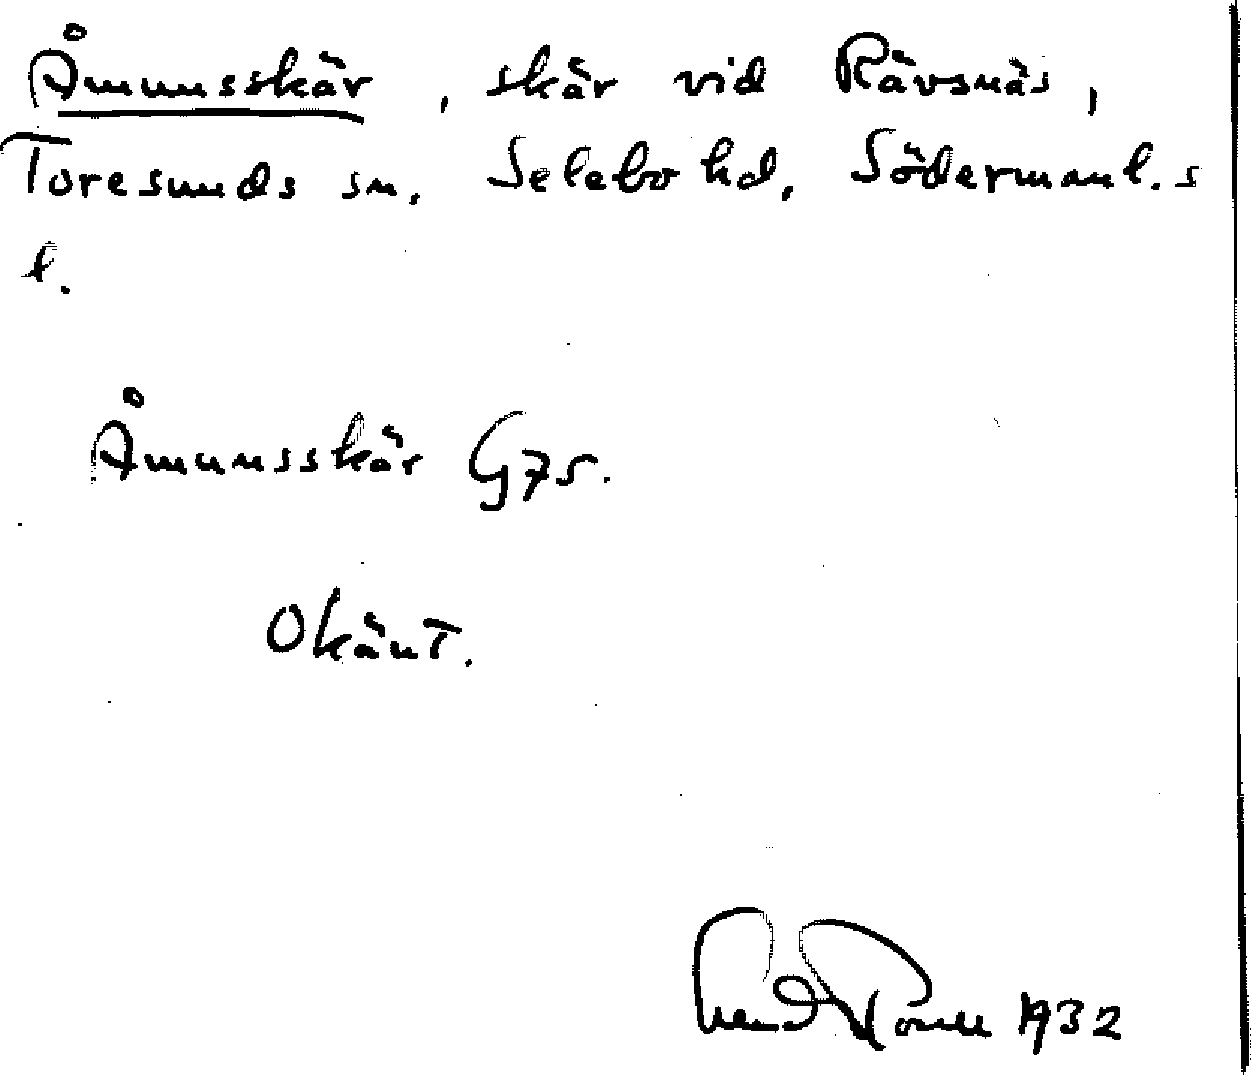 Åmunsskär, skär vid Rävsnäs,
Toresunds sn. Selebo hd, Södermanl.s
l.
Åmunsskär G75.
Okänt.
1932